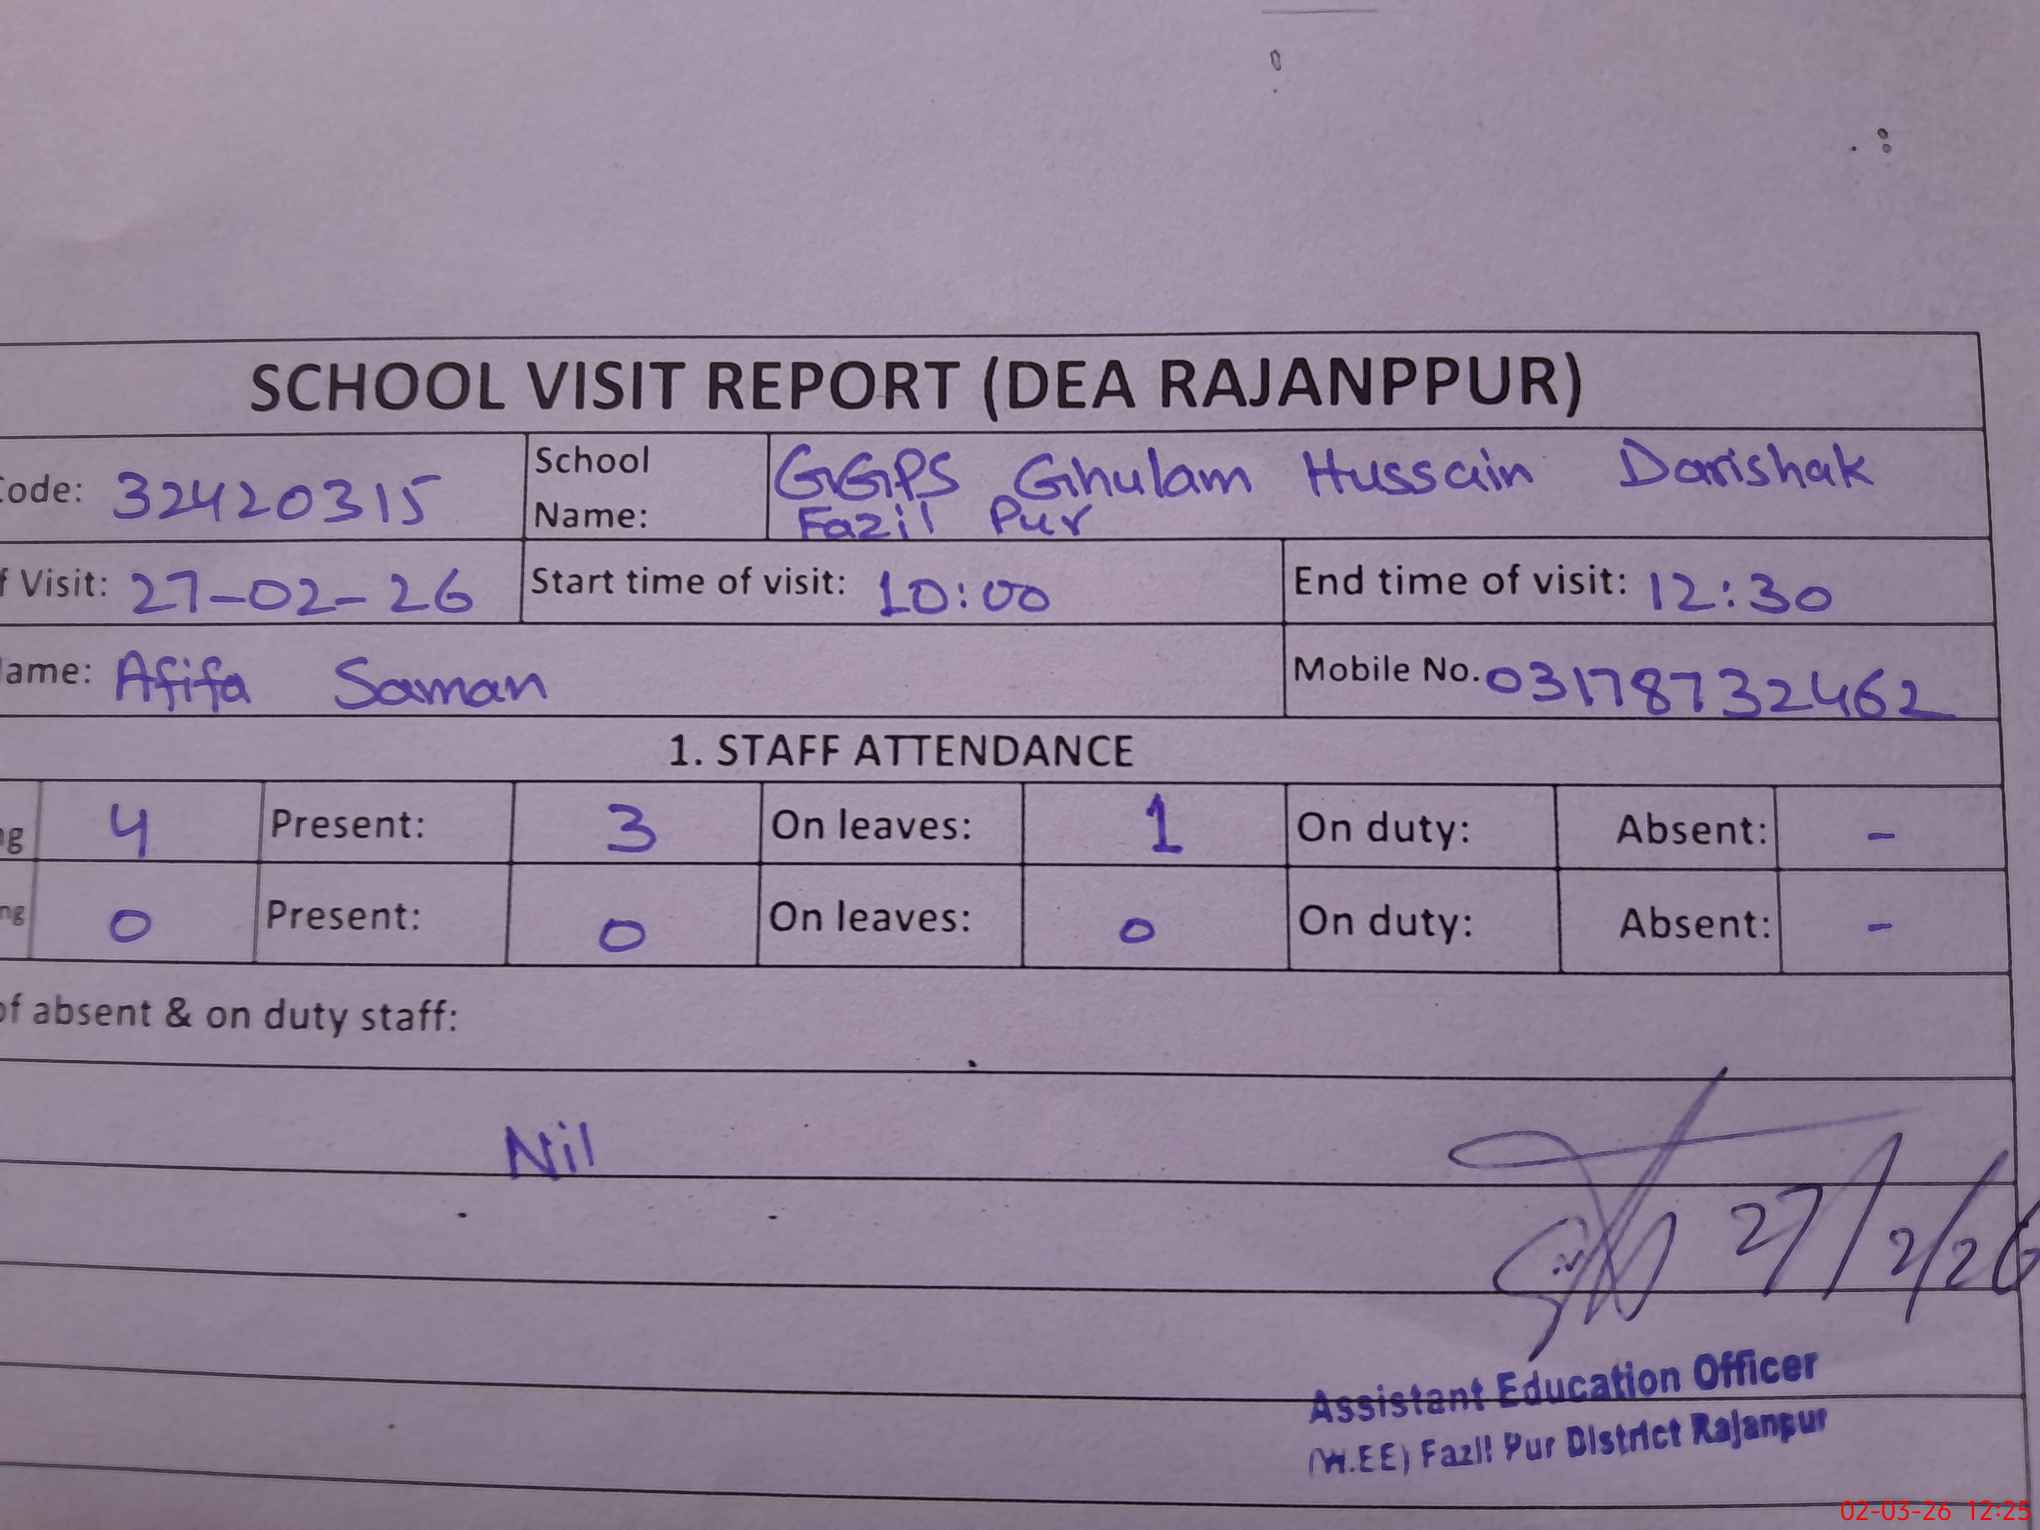 SCHOOL VISIT REPORT (DEA RAJANPPUR)
Code: 32420315 School Name: GGPS Ghulam Hussain Darishak Fazil Pur
f Visit: 27-02-26 Start time of visit: 10:00 End time of visit: 12:30
Name: Afifa Saman Mobile No. 031787732462
1. STAFF ATTENDANCE
ng 4 Present: 3 On leaves: 1 On duty: Absent: -
ng 0 Present: 0 On leaves: 0 On duty: Absent: -
of absent & on duty staff:
Nil
27/2/26
Assistant Education Officer
(W.EE) Fazil Pur District Rajanpur
02-03-26 12:25